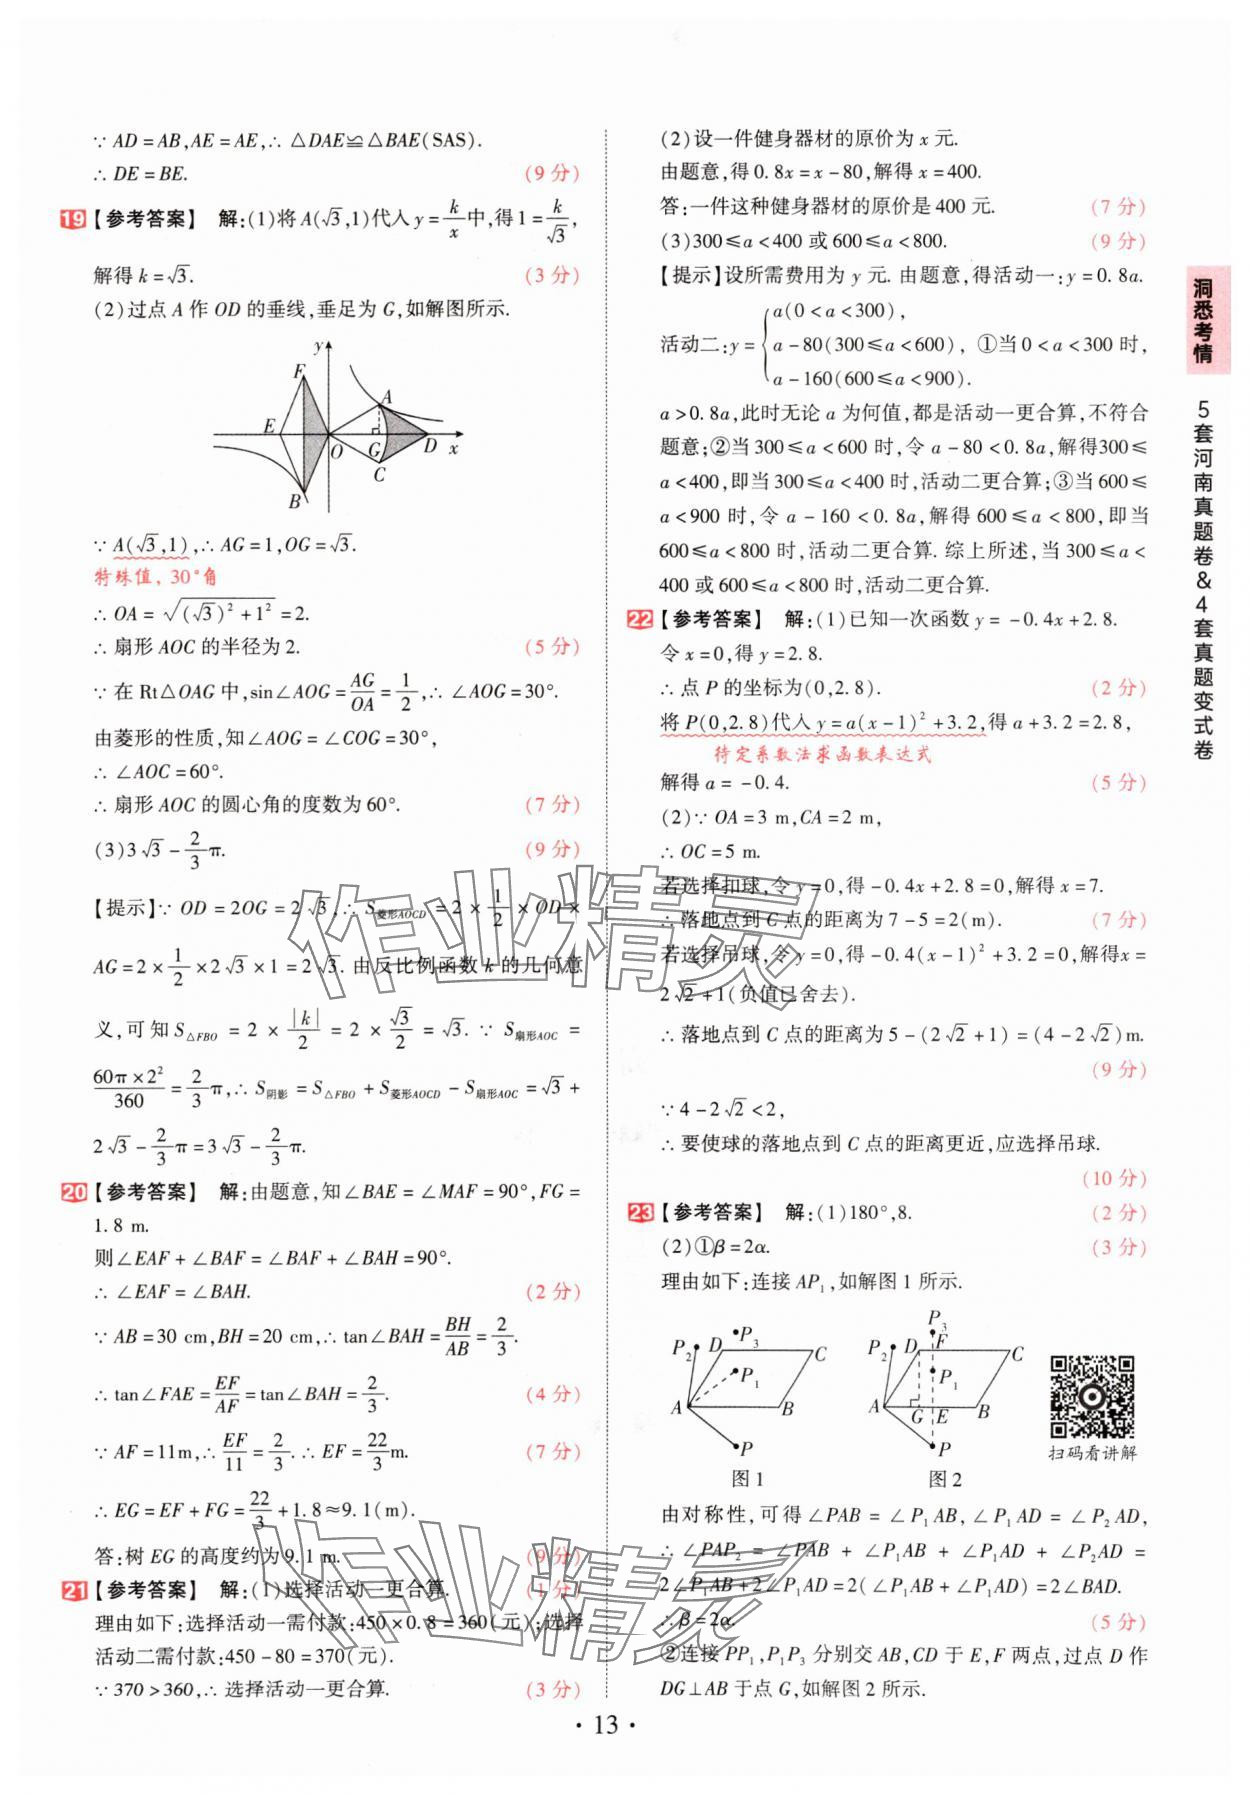 ∵ AD=AB,AE=AE,∴ △DAE≌△BAE(SAS).
∴ DE=BE. (9分)
19【参考答案】 解:(1)将A(√3,1)代入y=k/x中,得1=k/√3,
解得k=√3. (3分)
(2)过点A作OD的垂线,垂足为G,如解图所示.
y
F
A
E
O
G
D
x
C
B
∵ A(√3,1),∴ AG=1,OG=√3.
特殊值,30°角
∴ OA=√((√3)²+1²)=2.
∴ 扇形AOC的半径为2. (5分)
∵ 在Rt△OAG中,sin∠AOG=AG/OA=1/2,∴ ∠AOG=30°.
由菱形的性质,知∠AOG=∠COG=30°,
∴ ∠AOC=60°.
∴ 扇形AOC的圆心角的度数为60°. (7分)
(3)3√3-2/3π. (9分)
【提示】∵ OD=2OG=2√3,∴ S菱形AOCD=2×1/2×OD×
AG=2×1/2×2√3×1=2√3. 由反比例函数k的几何意
义,可知S△FBO=2×|k|/2=2×√3/2=√3. ∵ S扇形AOC=
60π×2²/360=2/3π,∴ S阴影=S△FBO+S菱形AOCD-S扇形AOC=√3+
2√3-2/3π=3√3-2/3π.
20【参考答案】 解:由题意,知∠BAE=∠MAF=90°,FG=
1.8 m.
则∠EAF+∠BAF=∠BAF+∠BAH=90°.
∴ ∠EAF=∠BAH. (2分)
∵ AB=30 cm,BH=20 cm,∴ tan∠BAH=BH/AB=2/3.
∴ tan∠FAE=EF/AF=tan∠BAH=2/3. (4分)
∵ AF=11m,∴ EF/11=2/3. ∴ EF=22/3m. (7分)
∴ EG=EF+FG=22/3+1.8≈9.1(m).
答:树EG的高度约为9.1 m. (9分)
21【参考答案】 解:(1)选择活动一更合算. (1分)
理由如下:选择活动一需付款:450×0.8=360(元);选择
活动二需付款:450-80=370(元).
∵ 370>360,∴ 选择活动一更合算. (3分)
(2)设一件健身器材的原价为x元.
由题意,得0.8x=x-80,解得x=400.
答:一件这种健身器材的原价是400元. (7分)
(3)300≤a<400或600≤a<800. (9分)
【提示】设所需费用为y元. 由题意,得活动一:y=0.8a.
活动二:y={a(0<a<300),
a-80(300≤a<600), ①当0<a<300时,
a-160(600≤a<900).
a>0.8a,此时无论a为何值,都是活动一更合算,不符合
题意;②当300≤a<600时,令a-80<0.8a,解得300≤
a<400,即当300≤a<400时,活动二更合算;③当600≤
a<900时,令a-160<0.8a,解得600≤a<800,即当
600≤a<800时,活动二更合算. 综上所述,当300≤a<
400或600≤a<800时,活动二更合算.
22【参考答案】 解:(1)已知一次函数y=-0.4x+2.8.
令x=0,得y=2.8.
∴ 点P的坐标为(0,2.8). (2分)
将P(0,2.8)代入y=a(x-1)²+3.2,得a+3.2=2.8,
待定系数法求函数表达式
解得a=-0.4. (5分)
(2)∵ OA=3 m,CA=2 m,
∴ OC=5 m.
若选择扣球,令y=0,得-0.4x+2.8=0,解得x=7.
∴ 落地点到C点的距离为7-5=2(m). (7分)
若选择吊球,令y=0,得-0.4(x-1)²+3.2=0,解得x=
2√2+1(负值已舍去).
∴ 落地点到C点的距离为5-(2√2+1)=(4-2√2)m.
(9分)
∵ 4-2√2<2,
∴ 要使球的落地点到C点的距离更近,应选择吊球.
(10分)
23【参考答案】 解:(1)180°,8. (2分)
(2)①β=2α. (3分)
理由如下:连接AP₁,如解图1所示.
P₂ D P₃ C
P₁
A B
P
图1
P₃
P₂ D F C
P₁
A G E B
P
图2
扫码看讲解
由对称性,可得∠PAB=∠P₁AB,∠P₁AD=∠P₂AD,
∴ ∠PAP₂=∠PAB+∠P₁AB+∠P₁AD+∠P₂AD=
2∠P₁AB+2∠P₁AD=2(∠P₁AB+∠P₁AD)=2∠BAD.
∴ β=2α. (5分)
②连接PP₁,P₁P₃分别交AB,CD于E,F两点,过点D作
DG⊥AB于点G,如解图2所示.
洞悉考情
5套河南真题卷&4套真题变式卷
作业精灵
作业精灵
· 13 ·